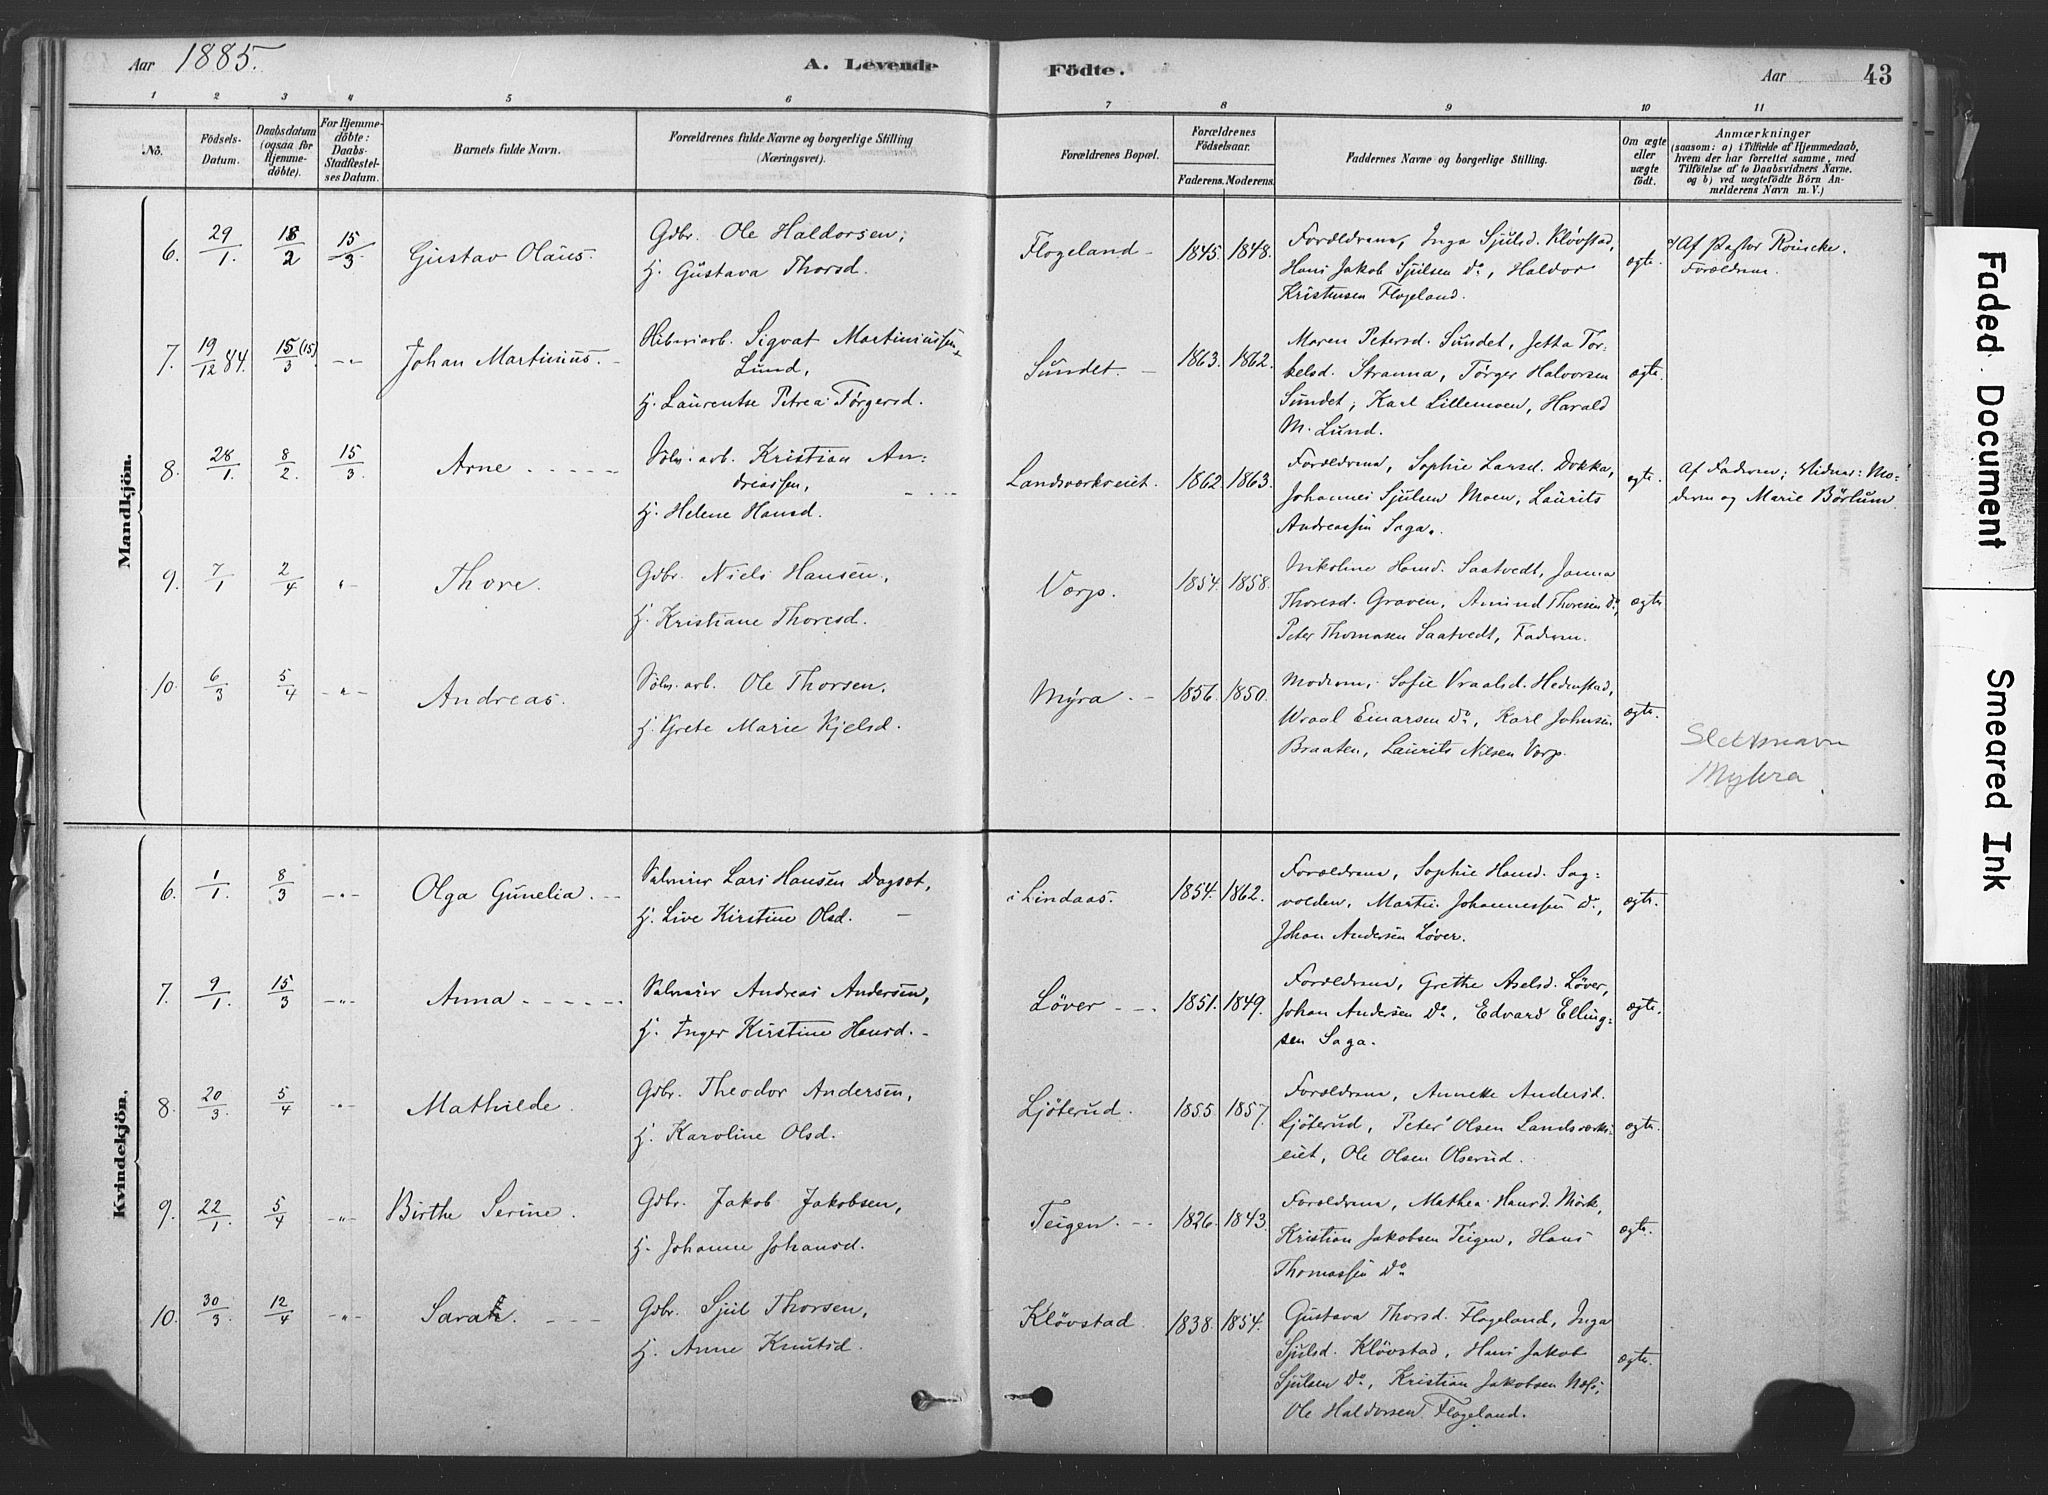 Aar 1885. A. Levende Födte. Aar 43
1 2 3 4 5 6 7 8 9 10 11
No.
Födsels-
Datum.
Daabsdatum
(ogsaa for
Hjemme-
döbte).
For Hjemme-
döbte:
Daabs-
Stadfæstel-
ses Datum.
Barnets fulde Navn.
Forældrenes fulde Navne og borgerlige Stilling
(Næringsvei).
Forældrenes Bopæl.
Forældrenes
Födselsaar.
Faderens. Moderens.
Faddernes Navne og borgerlige Stilling.
Om ægte
eller
uægte
födt.
Anmærkninger
(saasom: a) i Tilfælde af Hjemmedaab,
hvem der har forrettet samme, med
Tilföielse af to Daabsvidners Navne.
og b) ved uægtefödte Börn An-
melderens Navn m. V.)
Mandkjön.
6. 29/1. 18/2 15/3 Gustav Olaus.
Gdbr. Ole Haldorsen,
H. Gustava Thorsd.
Flogeland – 1845. 1848.
Forældrene, Inga Sjulsd. Kløvstad,
Hans Jakob Sjulsen Do, Haldor
Kristensen Flogeland.
ægte.
Af Pastor Reincke.
Forældrene.
7. 19/12 84. 15/3 (15) –"– Johan Martinius. –
Sigvat Martiniussen
Lund,
H. Laurentse Petrea Törgersd.
Sundet. – 1863. 1862.
Maren Petersd. Sundet, Jetta Tor-
kelsd. Stranna, Törger Halvorsen
Sundet, Karl Lillemoen, Harald
M. Lund.
ægte.
8. 28/1. 8/2. 15/3. Arne – – – –
Sölv. arb. Kristian An-
dreassen,
H. Helene Hansd.
Landsværkseiet. 1862 1863.
Forældrene, Sophie Larsd. Dokka,
Johannes Sjulsen Moen, Laurits
Andreassen Saga.
ægte.
Af Faderen; Vidner: Mo-
deren og Marie Börlum.
9. 7/1 2/4 " Thore.
Gdbr. Niels Hansen,
H. Kristiane Thoresd.
Værp. 1854. 1858.
Nikoline Hansd. Saatvedt, Janna
Thoresd. Graven, Amund Thoresen Do,
Peter Thomasen Saatvedt, Faderen.
ægte
10. 6/3 5/4 –"– Andreas.
Sölv. arb. Ole Thorsen,
H. Grete Marie Kjelsd.
Myra – 1856. 1850.
Moderen, Sofie Vraalsd. Hedenstad,
Wraal Einarsen Do, Karl Johnsen
Braaten, Laurits Nilsen Værp.
ægte.
Slektsnavn
Myhra
Kvindekjön.
6. 1/1. 8/3 –"– Olga Gunelia. –
Lars Hansen Dagsæt,
H. Live Kirstine Olsd. –
i Lindaas. 1854. 1862.
Forældrene, Sophie Hansd. Sag-
volden, Martin Johannessen Do,
Johan Andersen Løver.
ægte.
7. 9/1. 15/3 –"– Anna – – – –
Andreas Andersen,
H. Inger Kirstine Hansd. –
Løver – – 1851. 1849.
Forældrene, Grethe Axelsd. Løver,
Johan Andersen Do, Edvard Elling-
sen Saga.
ægte.
8. 20/3. 5/4 –"– Mathilde.
Gdbr. Theodor Andersen,
H. Karoline Olsd.
Ljöterud. 1855. 1857.
Forældrene, Annette Andersd.
Ljöterud, Peter Olsen Landsværks-
eiet, Ole Olsen Olserud.
ægte.
9. 22/1. 5/4 –"– Birthe Serine.
Gdbr. Jakob Jakobsen,
H. Johanne Johansd.
Teigen. – – 1826. 1843.
Forældrene, Mathea Hansd. Mörk,
Kristian Jakobsen Teigen, Hans
Thomassen Do
ægte.
10. 30/3. 12/4 –"– Sarah. – – –
Gdbr. Sjul Thorsen,
H. Anne Knutsd.
Kløvstad. 1838. 1854.
Gustava Thorsd. Flogeland, Inga
Sjulsd. Kløvstad, Hans Jakob
Sjulsen Do, Kristian Jakobsen Næss,
Ole Haldorsen Flogeland.
ægte.
Faded Document
Smeared Ink